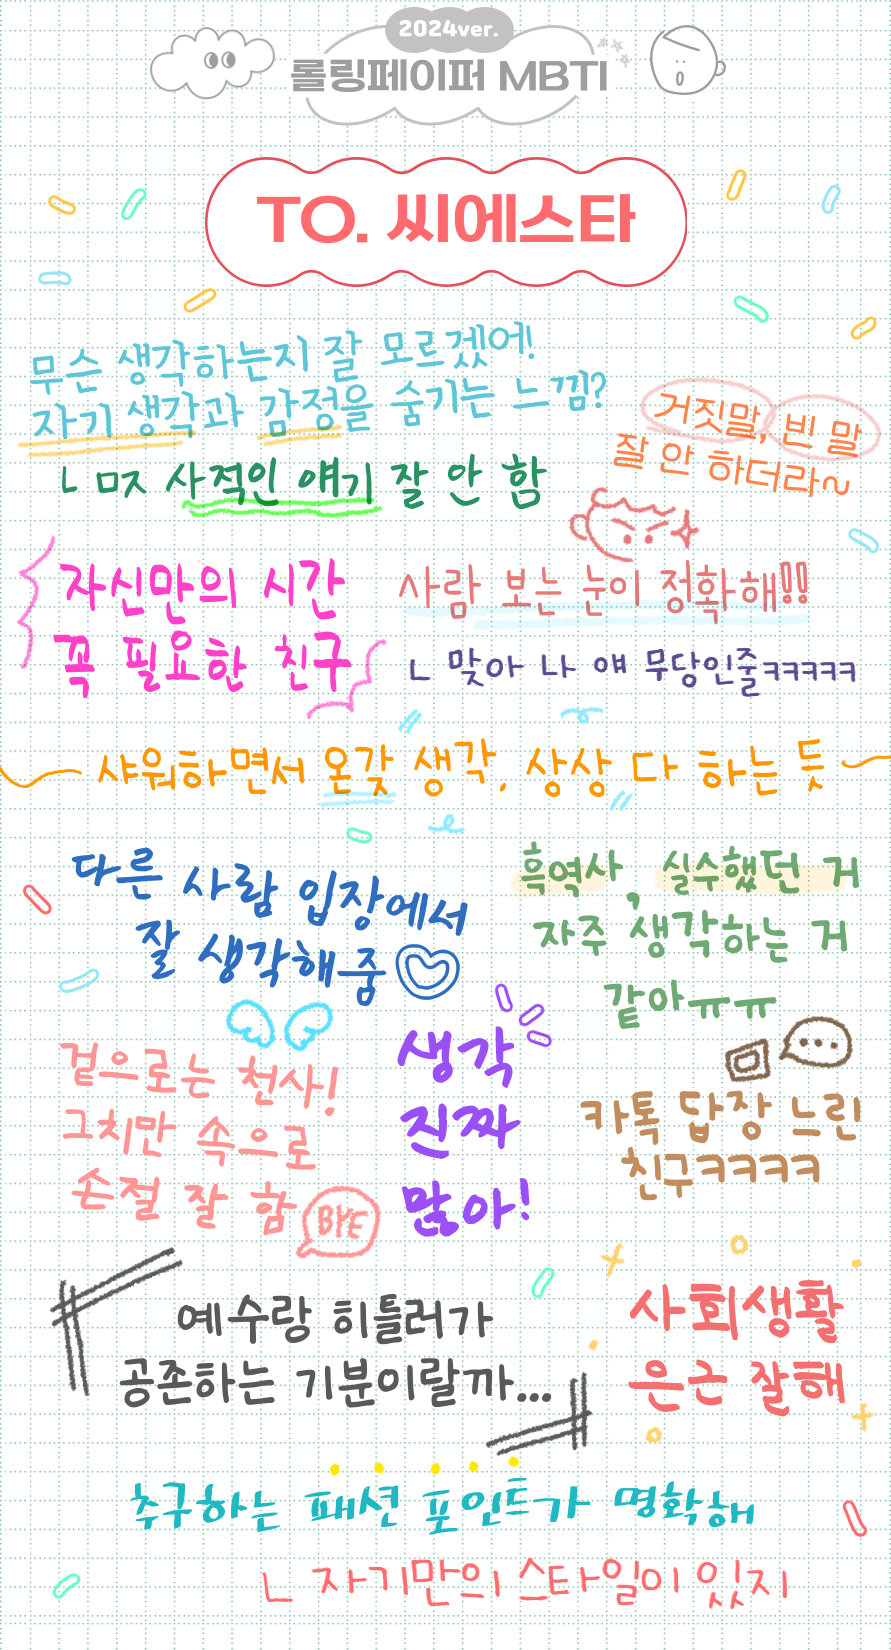 2024ver.
롤링페이퍼 MBTI
TO. 씨에스타
무슨 생각하는지 잘 모르겠어!
자기 생각과 감정을 숨기는 느낌?
ㄴ ㅁㅈ 사적인 얘기 잘 안 함
거짓말, 빈 말
잘 안 하더라~
자신만의 시간
꼭 필요한 친구
사람 보는 눈이 정확해!!
ㄴ 맞아 나 얘 무당인줄ㅋㅋㅋㅋㅋ
샤워하면서 온갖 생각, 상상 다 하는 듯
다른 사람 입장에서
잘 생각해줌
흑역사, 실수했던 거
자주 생각하는 거
같아ㅠㅠ
겉으로는 천사!
그치만 속으로
손절 잘 함
BYE
생각
진짜
많아!
카톡 답장 느린
친구ㅋㅋㅋㅋ
예수랑 히틀러가
공존하는 기분이랄까...
사회생활
은근 잘해
추구하는 패션 포인트가 명확해
ㄴ 자기만의 스타일이 있지